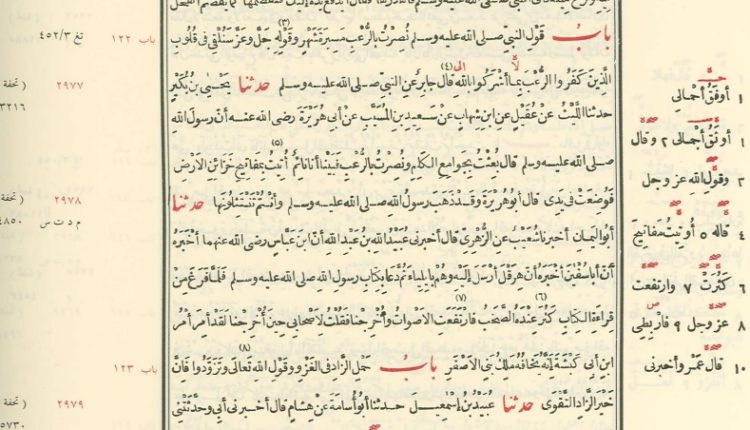 فقال أيدفع يده إليك فتقضمها كما يقضم الفحل
باب قول النبي صلى الله عليه وسلم نصرت بالرعب مسيرة شهر (٣) وقوله جل وعز سنلقي في قلوب
الَّذِينَ كَفَرُوا الرُّعْبَ بِمَا أَشْرَكُوا بِاللهِ (٤) قال جابر عن النبي صلى الله عليه وسلم حدثنا يحيى بن بكير
حدثنا الليث عن عقيل عن ابن شهاب عن سعيد بن المسيب عن أبي هريرة رضي الله عنه أن رسول الله
صلى الله عليه وسلم قال بعثت بجوامع الكلم ونصرت بالرعب فبينا أنا نائم (٥) أتيت بمفاتيح خزائن الأرض
فوضعت في يدي قال أبو هريرة وقد ذهب رسول الله صلى الله عليه وسلم وأنتم تنتثلونها حدثنا
أبو اليمان أخبرنا شعيب عن الزهري قال أخبرني عبيد الله بن عبد الله أن ابن عباس رضي الله عنهما أخبره
أن أبا سفيان أخبره أن هرقل أرسل إليه وهم بإيلياء ثم دعا بكتاب رسول الله صلى الله عليه وسلم فلما فرغ من
قراءة الكتاب كثر (٦) عنده الصخب فارتفعت (٧) الأصوات وأخرجنا فقلت لأصحابي حين أخرجنا لقد أمر أمر
ابن أبي كبشة إنه يخافه ملك بني الأصفر باب حمل الزاد في الغزو وقول الله تعالى (٨) وتزودوا فإن
خير الزاد التقوى حدثنا عبيد بن إسمعيل حدثنا أبو أسامة عن هشام قال أخبرني أبي وحدثتني
١ أوفق أجمالي
١ أوثق أجمالي ٢ وقال
٣ وقول الله عز وجل
٤ قاله ٥ أوتيت مفاتيح
٦ كثرت ٧ وارتفعت
٨ عز وجل ٩ فاربطي
١٠ قال عمر وأخبرني
باب ١٢٢
تغ ٤٥٢/٣
٢٩٧٧
(تحفة
١٣٢١٦
٢٩٧٨
(تحفة
م د ت س
٤٨٥٠
باب ١٢٣
٢٩٧٩
(تحفة
٥٧٣٠